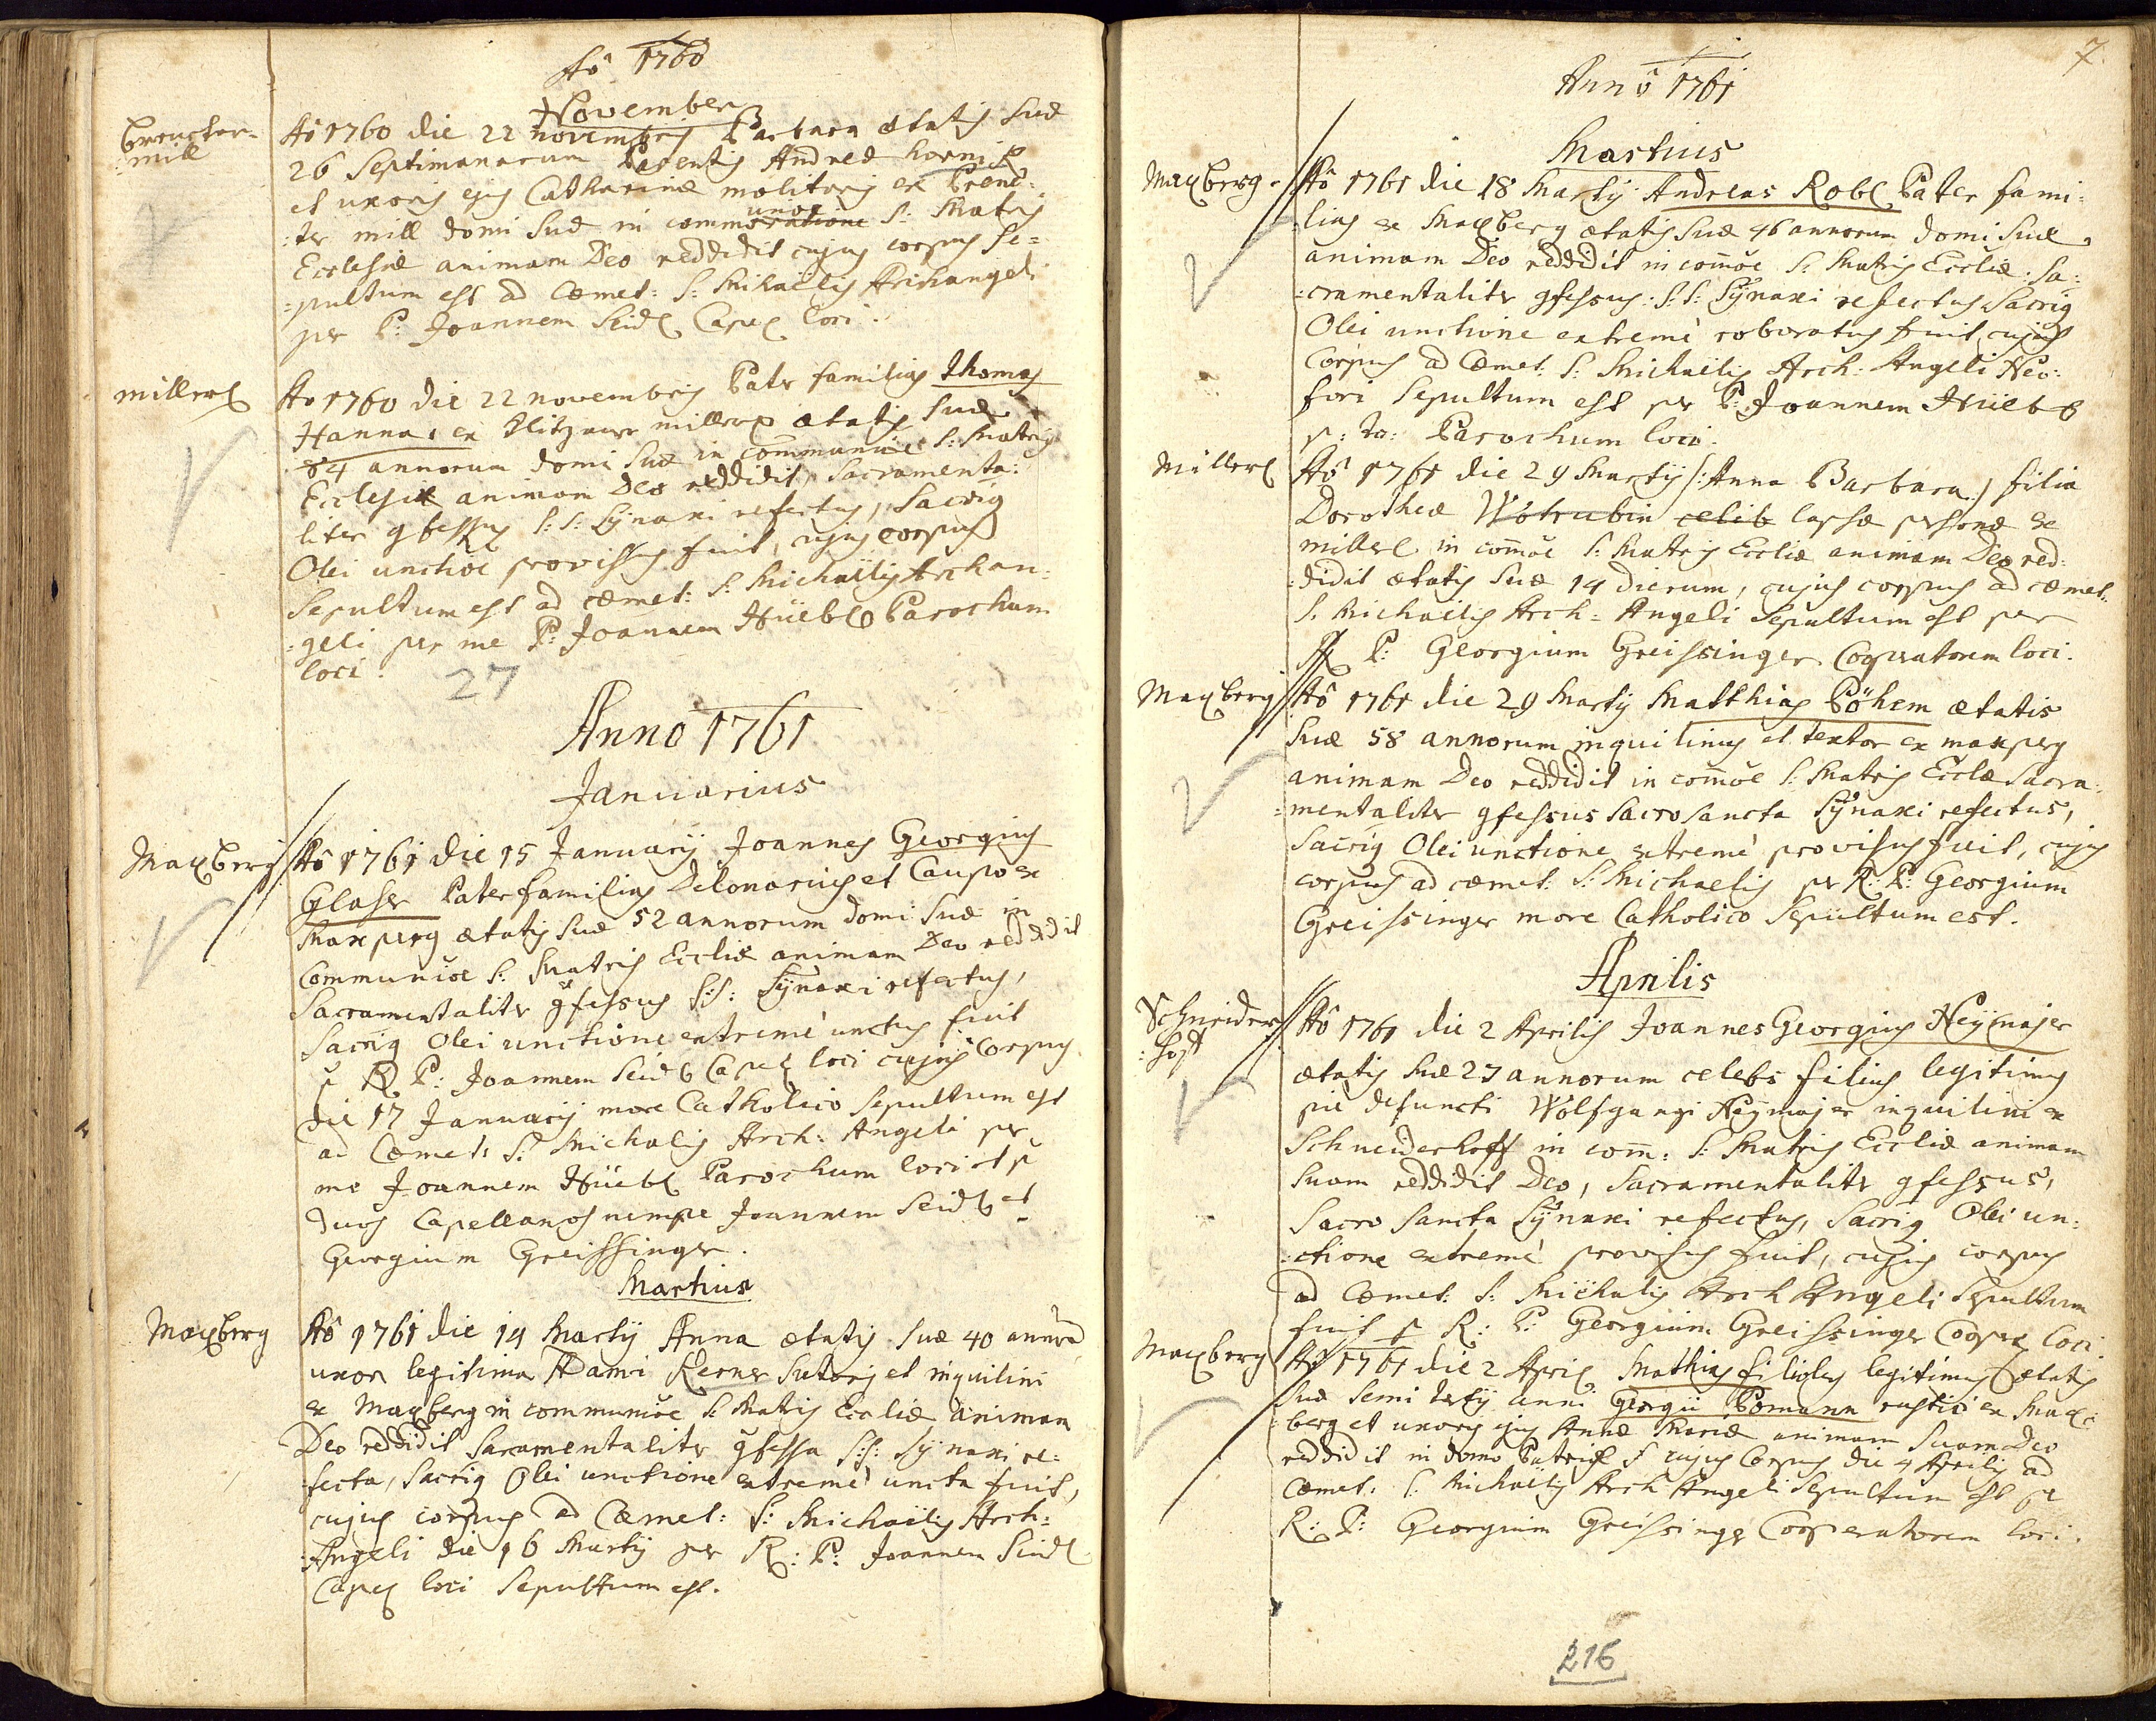 Aô 1760
November
Breuckter-
mill
Aô 1760 die 22 novembris Barbara ætatis suæ
26 Septimanarum Parentis Andreæ hornik
et uxoris ejus Catharinæ molitoris ex Prenc-
:ter mill domi suæ in commoratione unoe S: Matris
Ecclesiæ animam Deo reddidit cujus corpus se=
=pultum est ad Cœmet: S: Michaëlis Archangeli
per P: Joannem Seidl Capel loci.
millerl
Aô 1760 die 22 novembris Pater familias Thomas
Hanna, ex millerl ætatis suæ
84 annorum domi suæ in communiöe S: Matris
Ecclesiæ animam Deo reddidit, Sacramenta:
liter gfessus S:S: Sÿnaxi refectus, Sacrig
Olei unctiöe provissus fuit, cujus corpus
Sepultum est ad cœmet: S: Michaëlis Archan:
:geli per me P: Joannem Hüebl Parochum
loci.
27
Anno 1761
Januarius
Maxberg
Aô 1761 die 15 Januarÿ Joannes Georgius
Glaser Pater familias Telonarius et Caupo ex
Maxperg ætatis suæ 52 annorum domi suæ in
Communiöe S: Matris Eccliæ animam Deo reddidit
Sacramentaliter gfessus S:S: Sÿnaxi refectus,
Sacrig Olei unctione extremè unctus fuit
p R P: Joannem Seidl Capel loci cujus Corpus
die 17 Januarÿ more Catholico Sepultum est
ad Cœmet: S: Michaëlis Arch: Angeli per
me Joannem Hüebl Parochum loci et p
duos Capellanos nempe Joannem Seidl et
Georgium Greissinger.
Martius
Maxberg
Aô 1761 die 14 Martÿ Anna ætatis suæ 40 annorũ
uxor legitima Adami Kerner Sutoris et inquilini
ex Maxberg in communiöe S: Matris Eccliæ animam
Deo reddidit Sacramentaliter gfessa S:S: Sÿnaxi re:
:fecta, Sacrig Olei unctione extremè uncta fuit,
cujus corpus ad Cœmet: S: Michaëlis Arch:
:Angeli die 16 Martÿ per R: P: Joannem Seidl
Capel loci Sepultum est.
7.
Annô 1761
Martius
Maxberg.
Aô 1761 die 18 Martÿ Andreas Robl Pater fami:
:lias ex Maxberg ætatis suæ 46 annorum domi suæ
animam Deo reddidit in comôe S: Matris Eccliæ. Sa:
:cramentaliter gfessus: S:S: Sÿnaxi refectus, Sacrig
Olei unctione extremè roboratus fuit, cujus
Corpus ad Cœmet: S: Michaëlis Arch: Angeli Neo:
fori Sepultum est per P: Joannem Hüebl
p: to: Parochum loci.
Millerl
Aô 1761 die 29 Martÿ (:Anna Barbara:) filia
Dorotheæ Wotrubin celib lapsæ personæ ex
millerl in comôe S: Matris Eccliæ animam Deo red:
:didit ætatis suæ 14 dierum, cujus corpus ad cœmet:
S. Michaëlis Arch: Angeli Sepultum est per
R P: Georgium Greissinger Cooperatorem loci.
Maxberg
Aô 1761 die 29 Martÿ Matthias Böhem ætatis
suæ 58 annorum inquilinus et textor ex maxperg
animam Deo reddidit in comôe S: Matris Eccliæ Sacra:
:mentaliter gfessus Sacro Sancta Sÿnaxi refectus,
Sacrig Olei unctione extremè provisus fuit, cujus
corpus ad cœmet: S: Michaelis per R: P: Georgium
Greissinger more Catholico Sepultum est.
Aprilis
Schneider
:hoff
Aô 1761 die 2 Aprilis Joannes Georgius Heÿmajer
ætatis suæ 27 annorum celebs filius legitimus
pie defuncti Wolfgangi Heÿmajer inquilini ex
Schneiderhoff in com: S: Matris Eccliæ animam
suam reddidit Deo, Sacramentaliter gfessus,
Sacro Sancta Sÿnaxi refectus, Sacrig Olei un:
:ctione extremè provisus fuit, cujus corpus
ad Cœmet: S: Michaelis Arch Angeli Sepultum
fuit p R: P: Georgium Greissinger Cooper loci.
Maxberg
Aô 1761 die 2 April Mathias filiolus legitimus ætatis
suæ semi tertÿ anni Georgii Bomann rustici ex Max:
:berg et uxoris ejus Annæ Mariæ animam suam Deo
reddidit in domo cujus Corpus die 4 Aprilis ad
Cœmet: S. Michaëlis Arch Angeli Sepultum est per
R: P: Georgium Greissinger Cooperatorem loci.
216